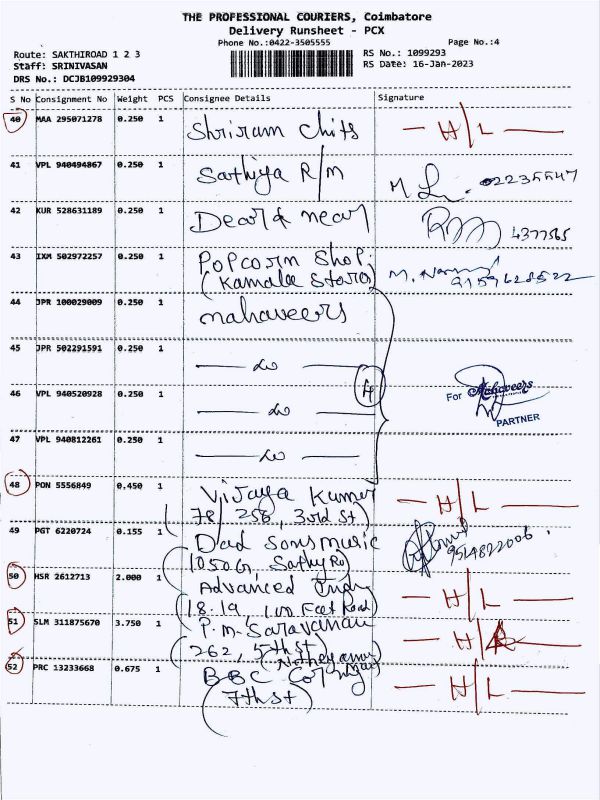 THE PROFESSIONAL COURIERS, Coimbatore
Delivery Runsheet - PCX
Phone No.:0422-3505555 Page No.:4
Route: SAKTHIROAD 1 2 3 RS No.: 1099293
Staff: SRINIVASAN RS Date: 16-Jan-2023
DRS No.: DCJB109929304
S No Consignment No Weight PCS Consignee Details Signature
40 MAA 295071278 0.250 1 Shriram Chits H/L
41 VPL 940494867 0.250 1 Sathiya R/M
42 KUR 528631189 0.250 1 Dear & near 4377565
43 IXM 502972257 0.250 1 Popcorn Shop,
(Kamala Store) 9159628522
44 JPR 100029009 0.250 1 mahaveers
45 JPR 502291591 0.250 1
46 VPL 940520928 0.250 1 4 For Mahaveers
PARTNER
47 VPL 940812261 0.250 1
48 PON 5556849 0.450 1 Vijaya Kumar H/L
78/258, 3rd St)
49 PGT 6220724 0.155 1 Dad Sons music 9514822006
(1050G Sathy Rd)
50 HSR 2612713 2.000 1 Advanced H/L
(18.19, 100 Feet Road)
51 SLM 311875670 3.750 1 P.M. Saravanan H/L
(262, 5th St
52 PRC 13233668 0.675 1 BBC H/L
(7th St)